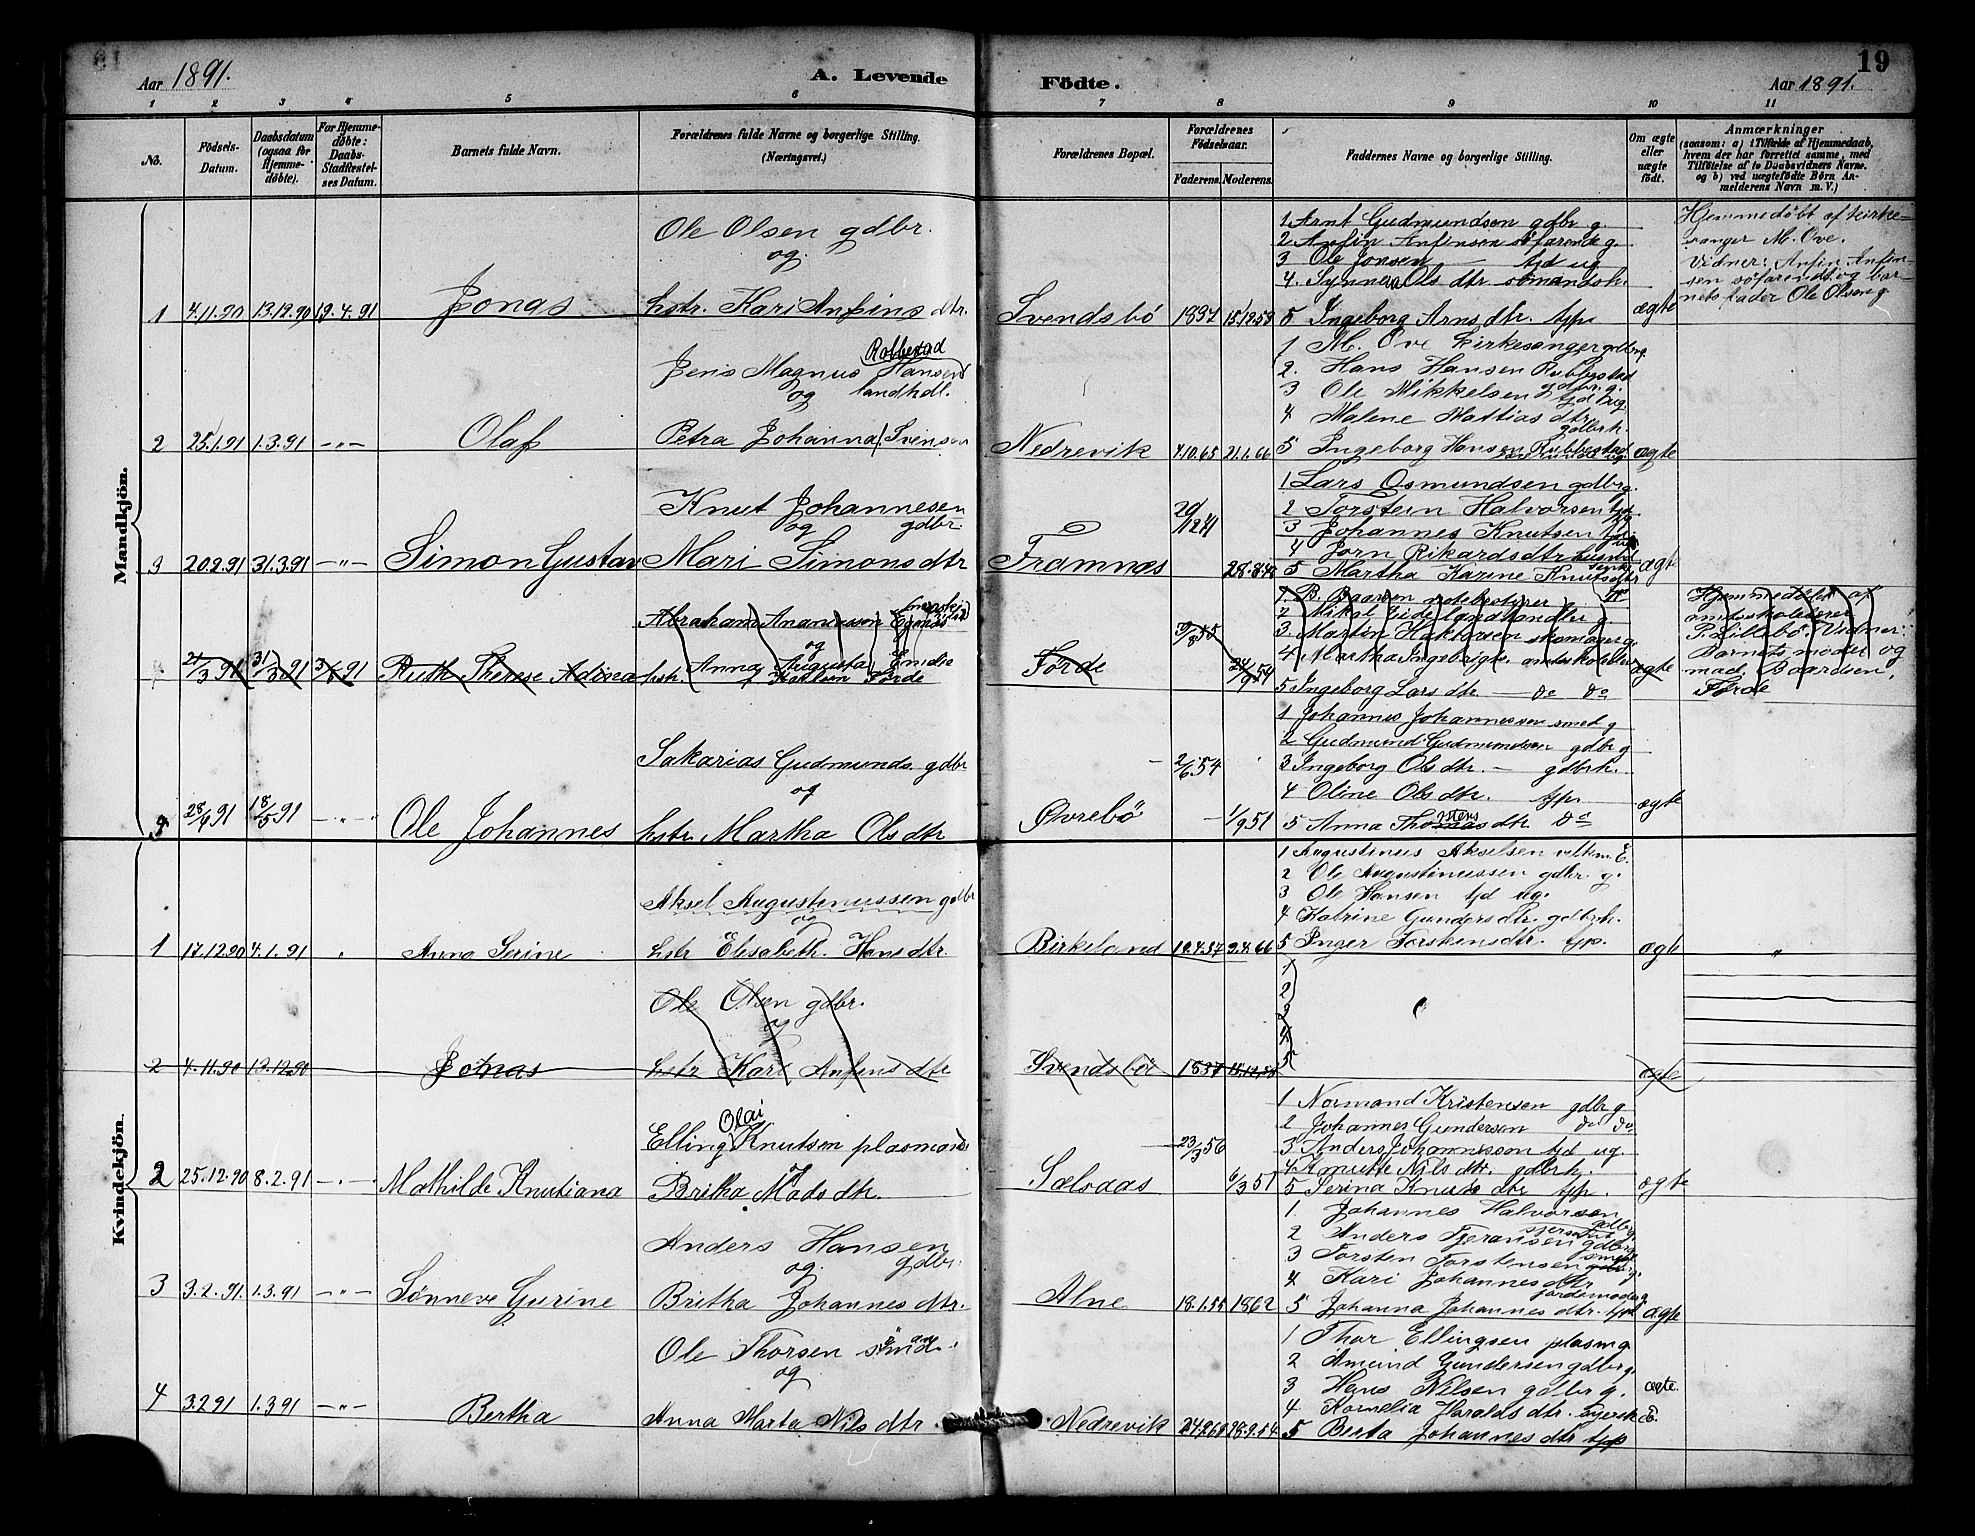 19
Aar 1891.
A. Levende Födte.
Aar 1891.
1 2 3 4 5 6 7 8 9 10 11
No.
Födsels-Datum.
Daabsdatum (ogsaa for Hjemmedöbte).
For Hjemmedöbte: Daabs-Stadfæstelses Datum.
Barnets fulde Navn.
Forældrenes fulde Navne og borgerlige Stilling. (Næringsvei.)
Forældrenes Bopæl.
Forældrenes Födselsaar.
Faderens. Moderens.
Faddernes Navne og borgerlige Stilling.
Om ægte eller uægte födt.
Anmærkninger
(saasom: a) i Tilfælde af Hjemmedaab, hvem der har forrettet samme, med Tilföielse af to Daabsvidners Navne. og b) ved uægtefödte Börn Anmelderens Navn m. V.)
Mandkjön.
Ole Olsen gdbr.
og
1 4.11.90 13.12.90 19.4.91 Jonas hstr. Kari Anfins dtr. Svendsbö 1837 15.12.58
1 Arnt Gudmundsen gdbr g.
2 Anfin Anfinsen söfarende g.
3 Ole Jonsen — tjd ug
4. Synna Ols dtr sömandsk.
5 Ingeborg Arns dtr. tjp
ægte
Hjemmedöbt af kirke-
sanger M. Ove.
Vidner: Anfin Anfin-
sen söfarende og bar-
nets fader Ole Olsen g
Rolbestad
Jens Magnus Hansen
og landhdl.
2 25.1.91 1.3.91 —"— Olaf Petra Johanna Svensen Nedrevik 4.10.65 21.1.66
1 M. Ove kirkesanger gdbrg.
2. Hans Hansen Rubbestad
gdbr. g.
3 Ole Mikkelsen tjd ug
4 Malene Mattias dtr.
gdbrk.
5 Ingeborg Hansen Rubbestad
ægte
Knut Johannesen
og gdbr.
3 20.2.91 31.3.91 —"— Simon Gustav Mari Simons dtr Framnæs 28.8.
1 Lars Osmundsen gdbrg.
2 Torstein Halvorsen tjd
3 Johannes Knutsen
4 Jorn Rikards dtr
5 Martha Karine Knutsdtr
ægte
Abraham Ananiassen
og
21/3 91 31/3 91 91 Ruth Therese Adina hstr. Anna Augusta Førde 24/9 54
1. B. Baarsen
2 Mikal Eide landhandler g.
3. Martin Haktorsen skomager g.
4 Martha Ingebrigts.
5 Ingeborg Lars dtr. — do do
ægte
Hjemmedöbt af
amtskolelærer
P. Lillebö. Vidner:
Barnets moder og
mad. Baardsen,
Förde
Sakarias Gudmunds. gdbr 2/6 54
og
28/4 91 18/5 91 —"— Ole Johannes hstr Martha Ols dtr Øvrebö 1/9 51
1 Johannes Johannessen smed g
2 Gudmund Gudmundsen gdbr g
3 Ingeborg Ols dtr. — gdbrk.
4 Oline Ols dtr. tjp.
5 Anna dtr. do
ægte
Kvindekjön.
Aksel Augustinussen gdbr
og
1 17.12.90 4.1.91 " Anna Serine hstr Elisabeth Hans dtr. Birkeland 12.4.57 9.4.66
1 Augustinus Akselsen
2 Ole Augustinussen gdbr. g.
3 Ole Hansen tjd ug.
4 Katrine Gunders dtr. gdbrk.
5 Inger Torstensdtr. tjp.
ægte "
Ole Olsen gdbr.
og
2 4.11.90 13.12.90 Jonas hstr Kari Anfins dtr Svendsbö 1837 15.12.58
1
2
3
4
5
ægte
Olai
Elling Knutsen plasmand
og 23/3 56
2 25.12.90 8.2.91 —"— Mathilde Knutiana Britha Mads dtr. Sælvaas 6/3 51
1 Normand Kristensen gdbr g
2 Johannes Gundersen do do
3 Anders Johannesson tjd ug.
4 Nils dtr. gdbrk.
5 Serina Knuts dtr tjp.
ægte
Anders Hansen
og gdbr.
3 3.2.91. 1.3.91 —"— Sønneve Gurine Britha Johannes dtr. Alne 18.1.55 1862
1. Johannes Halvorsen
gdbrg.
2 Anders Tjeransen gdbrg
3 Torsten Torstensen
4 Kari Johannes dtr
jordemoder
5 Johanna Johannes dtr. tjp
ægte
Ole Thorsen sömand.
og
4 3.2.91 1.3.91 —"— Bertha Anna Marta Nils dtr Nedrevik 28.9.54
1 Thor Ellingsen plasm g.
2 Amund Gundersen gdbrg.
3 Hans Nilsen gdbr g.
4. Kornelia Haralds dtr.
5 Berta Johannes dtr tjp
ægte.